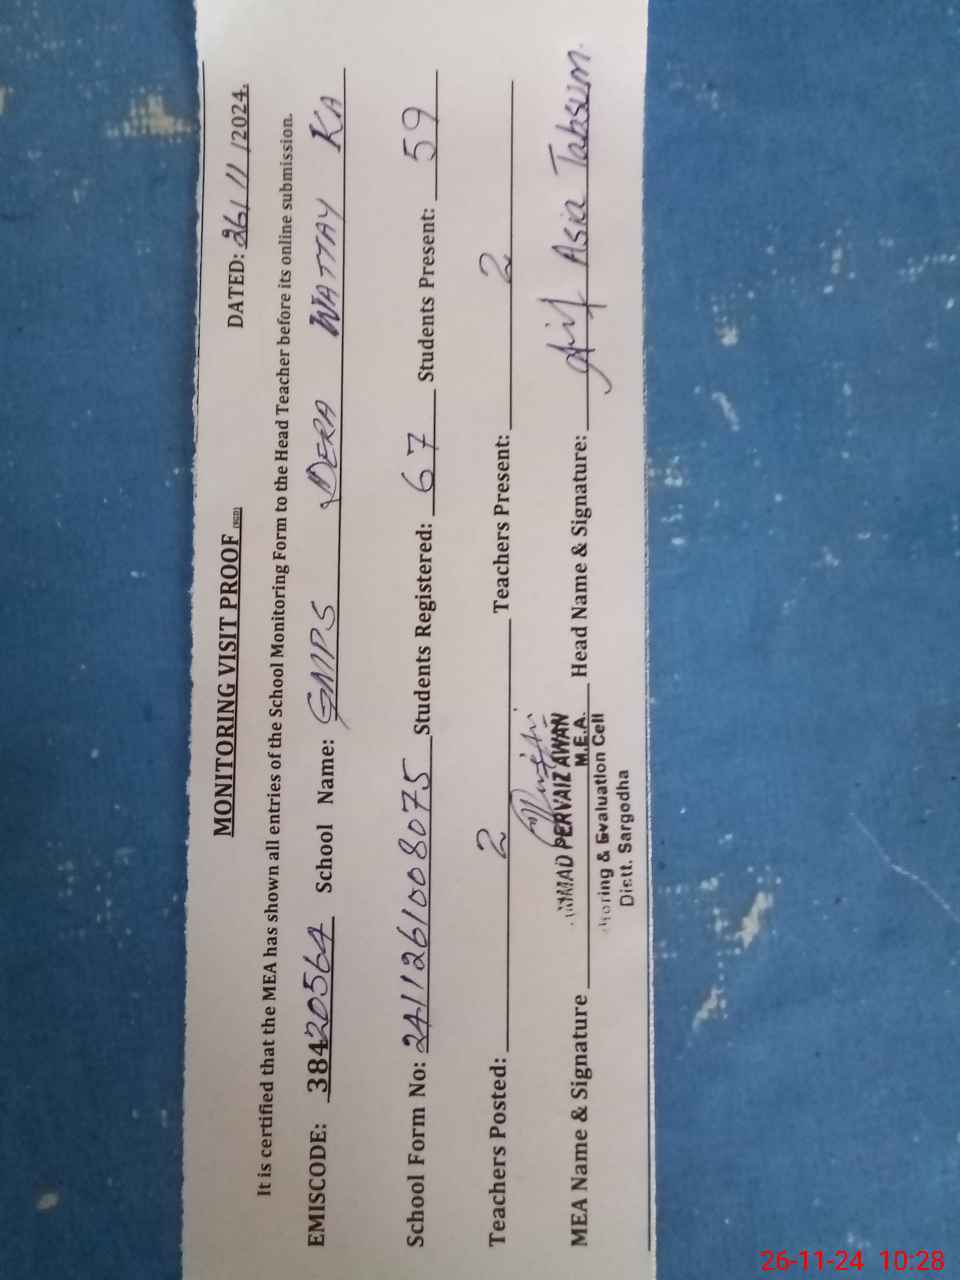 MONITORING VISIT PROOF (SGD)
DATED: 26/11/2024.
It is certified that the MEA has shown all entries of the School Monitoring Form to the Head Teacher before its online submission.
EMISCODE: 38420564 School Name: GMPS DERA WATTAY KA
School Form No: 2411261008075 Students Registered: 67 Students Present: 59
Teachers Posted: 2 Teachers Present: 2
MEA Name & Signature PERVAIZ AWAN Head Name & Signature: Asia Tabsum.
M.E.A.
& Evaluation Cell
Distt. Sargodha
26-11-24 10:28